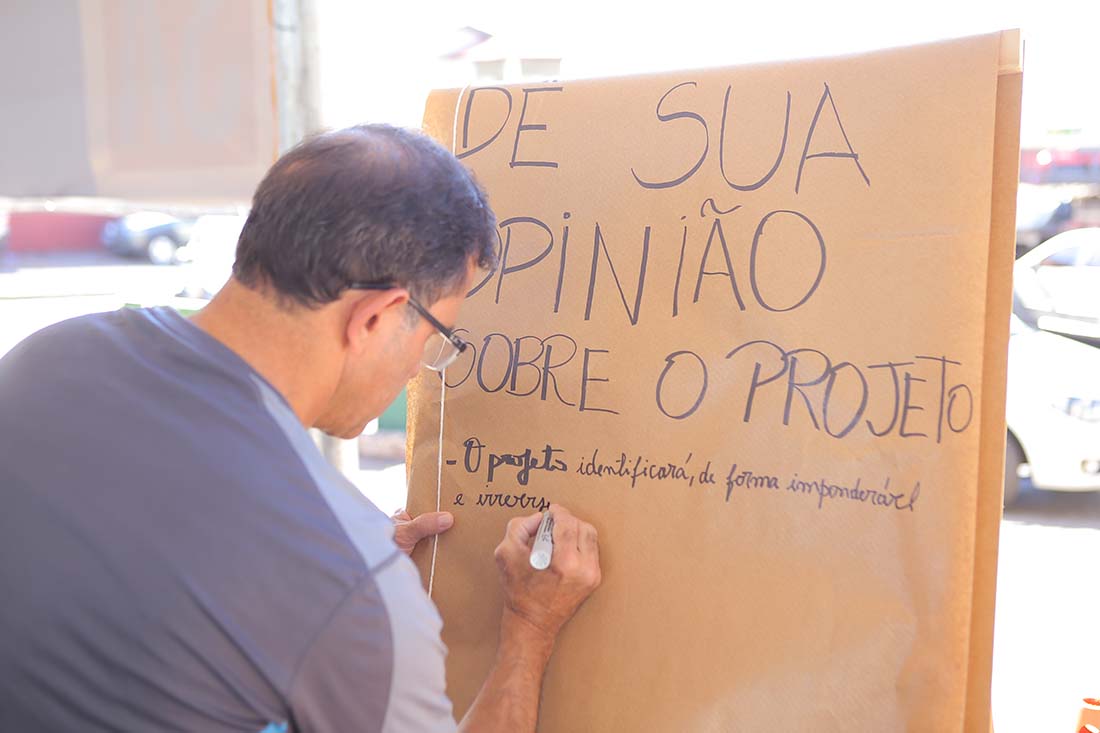 DÊ SUA
OPINIÃO
SOBRE O PROJETO
- O projeto identificará, de forma imponderável
e irrevers